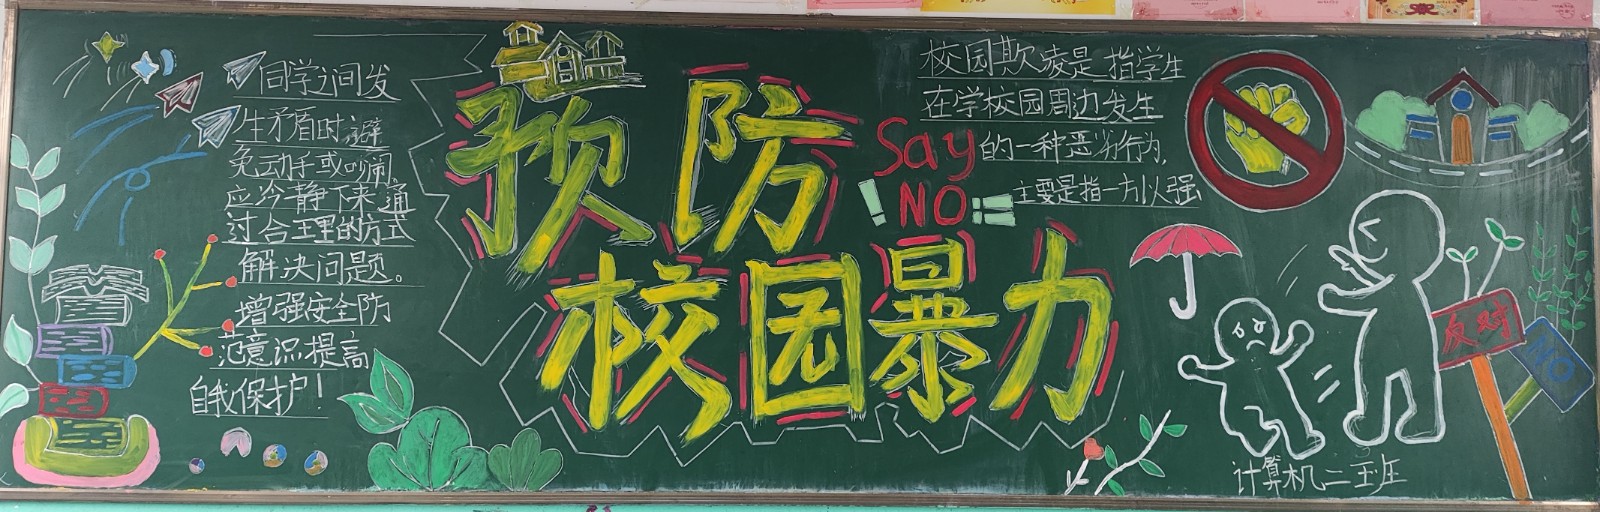 同学之间发
生矛盾时避
免动手或吵闹,
应冷静下来通
过合理的方式
解决问题。
增强安全防
范意识提高
自我保护!
预防
校园暴力
Say
NO
校园欺凌是指学生
在学校园周边发生
的一种恶劣行为,
主要是指一方以强
反对
NO
计算机二班